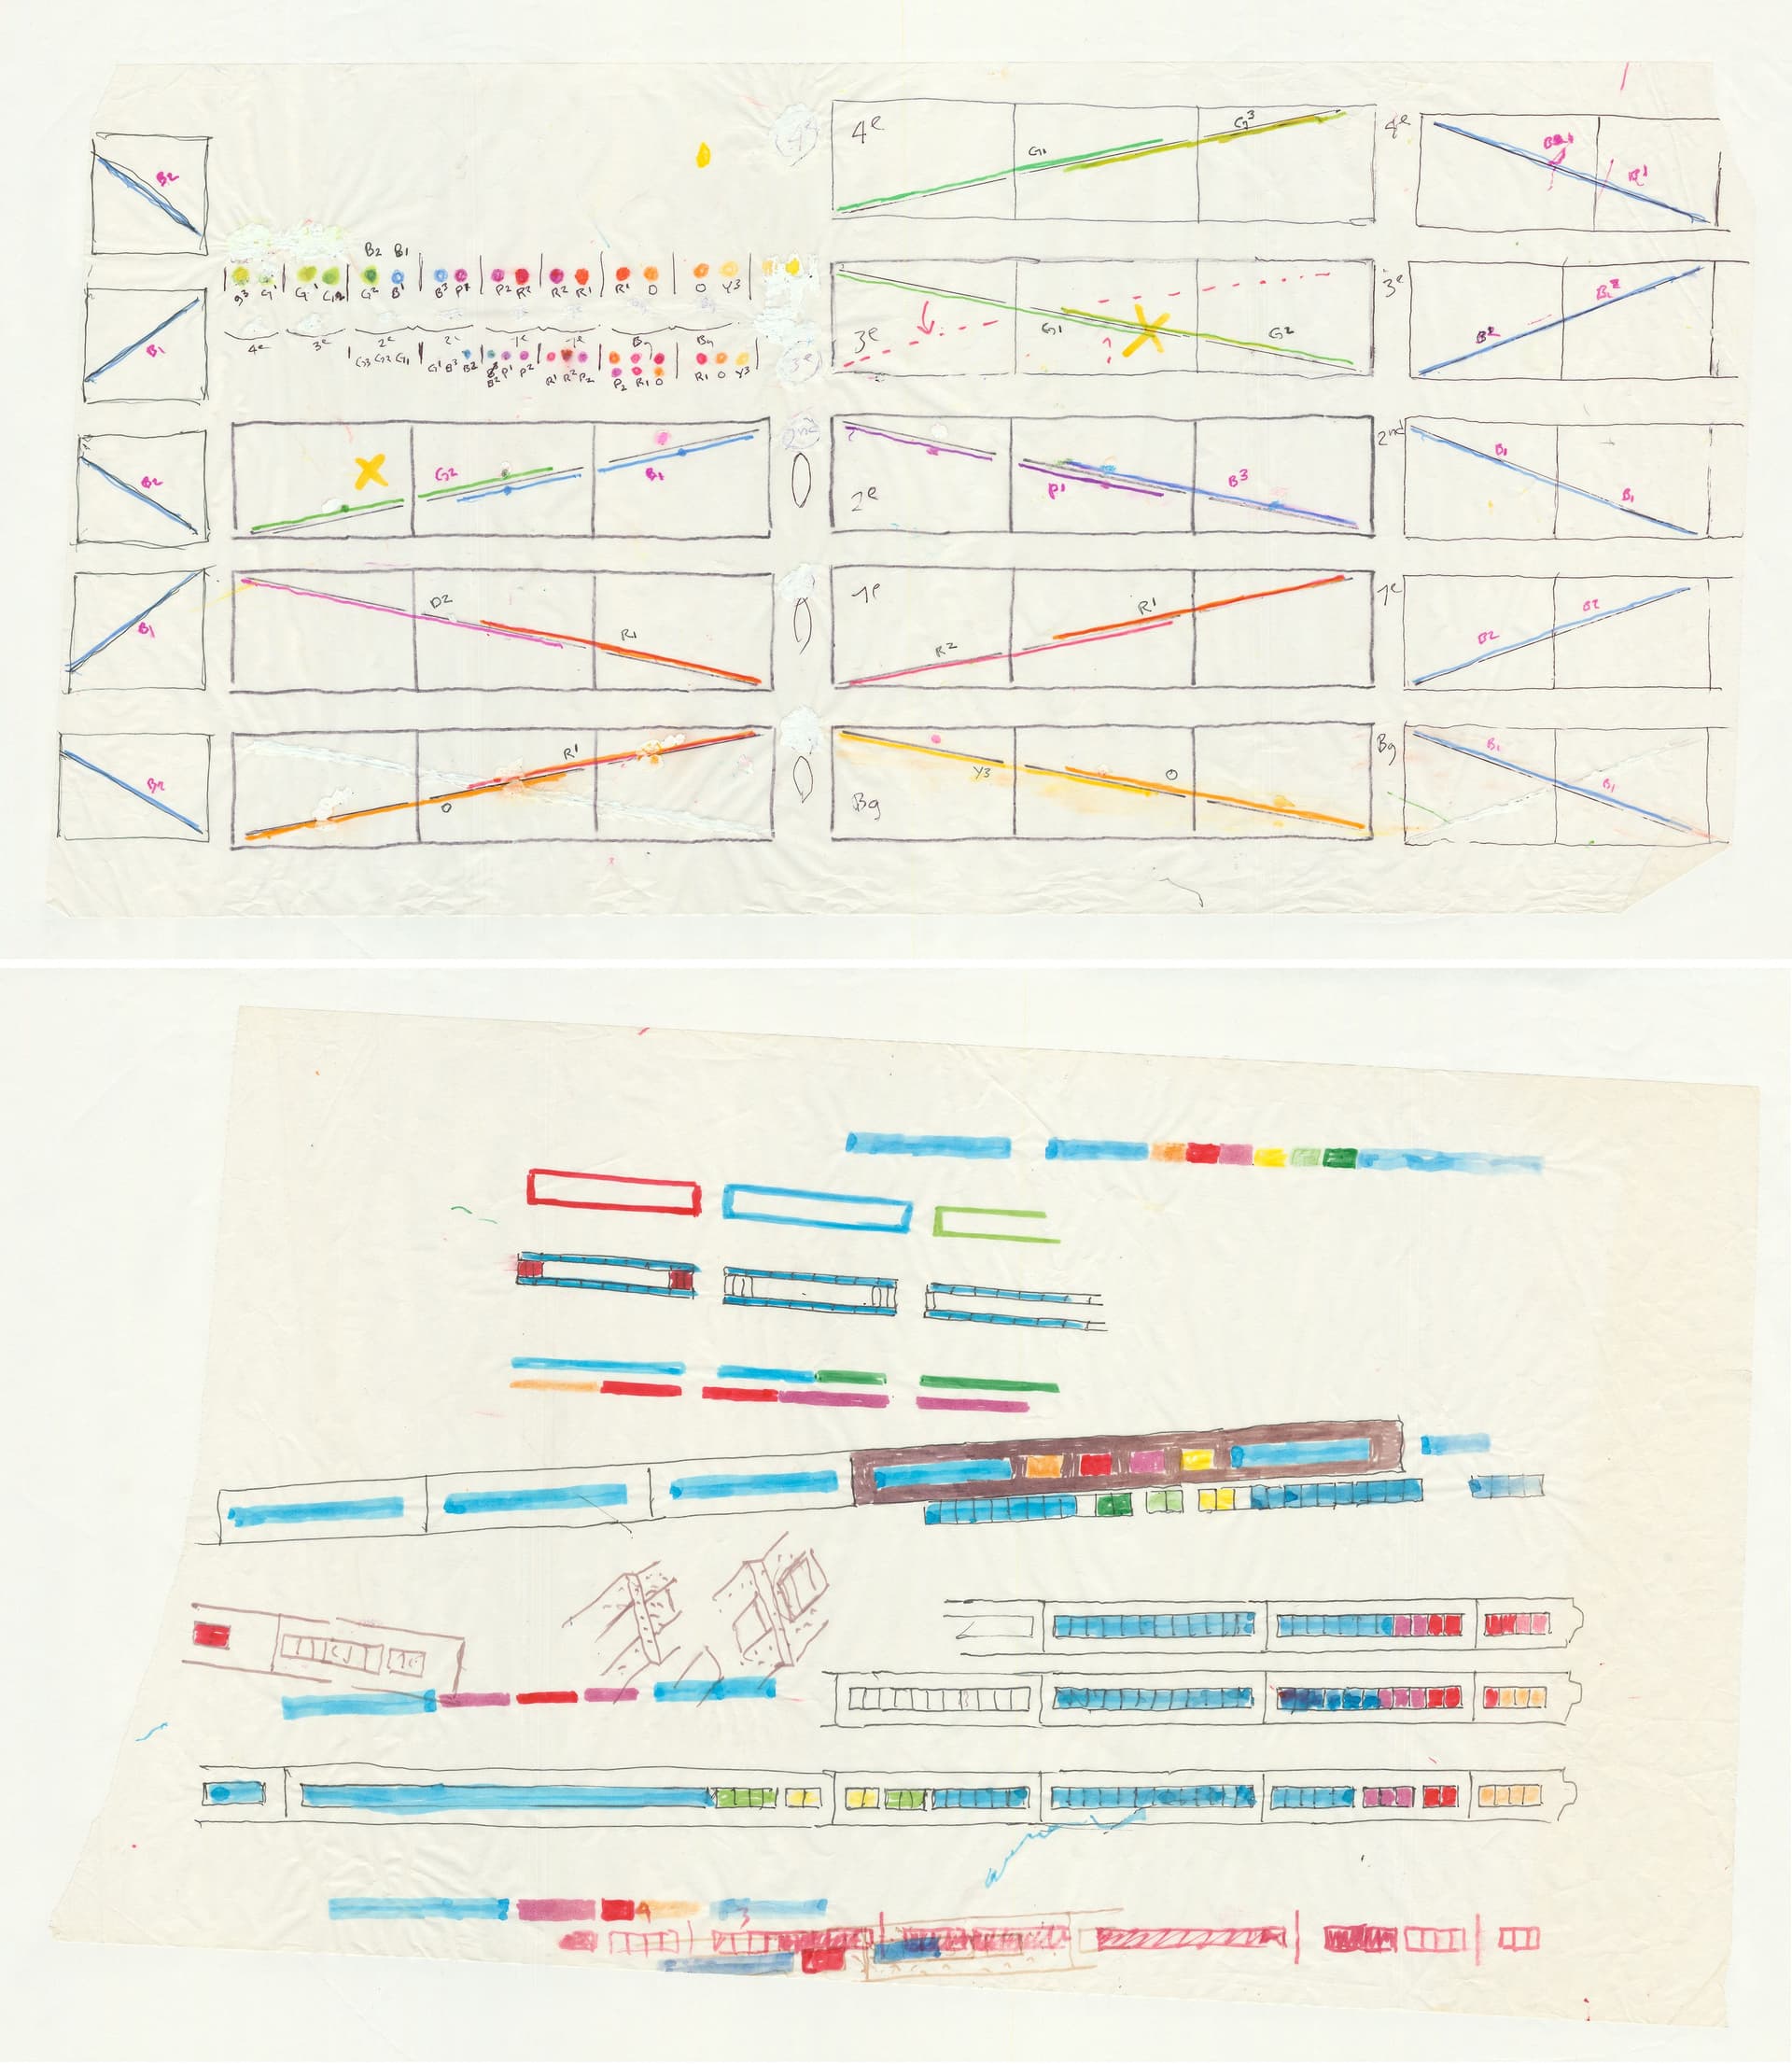 4e
G1
G3
4e
B2
B2 B1
G3 G1 G1 G2 B1 B3 P2 P2 R2 R2 R1 R1 O O Y3
3e
G1
G2
3e
B2
B2
B1
4e 3e 2e 2e 1e 1e Bg Bg
G3 G2 G1 G1 B3 B2 B2 P1 P2 R1 R2 P2 P2 R1 O R1 O Y3
B2
G2
B1
2nd
2e
P1
B3
2nd
B1
B1
B1
R1
1e
R2
R1
1e
B2
B2
B2
O
R1
Bg
Y3
O
Bg
B1
B1